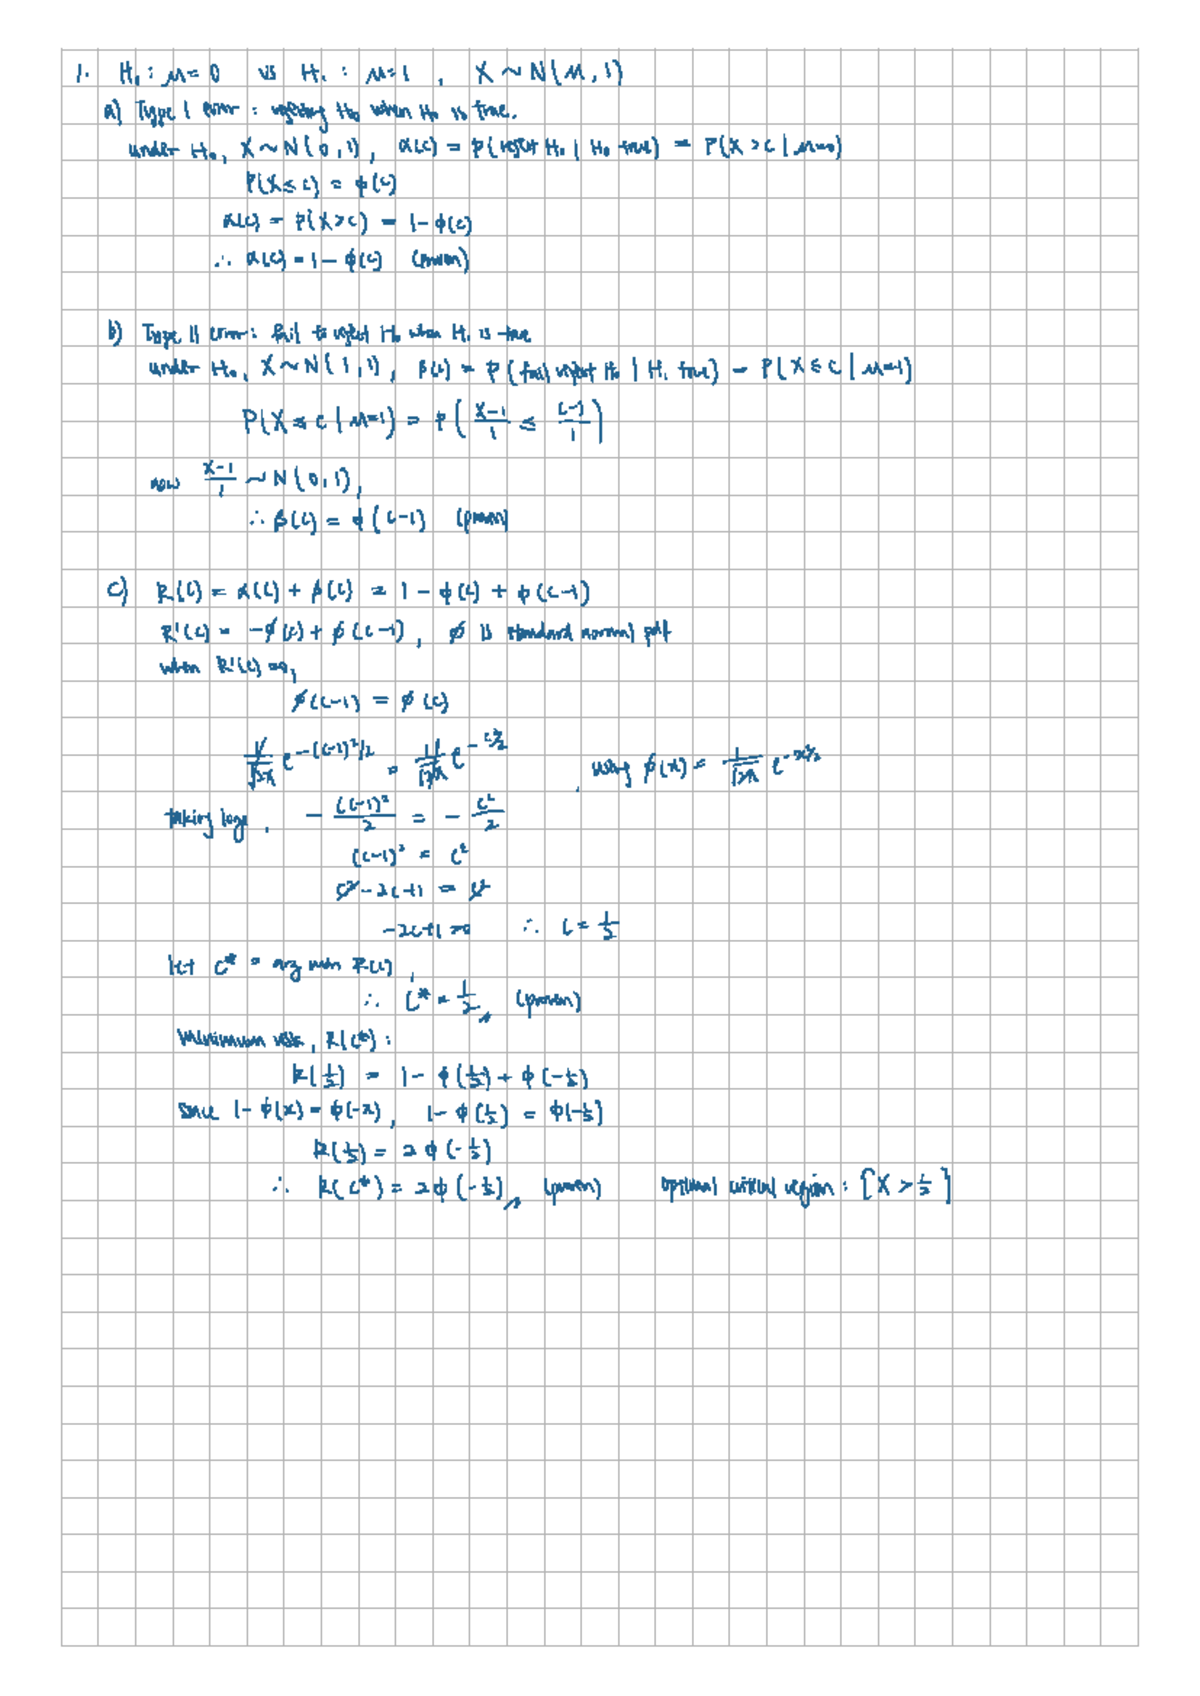 1. H₀ : μ = 0 vs H₁ : μ = 1 , X ~ N(μ, 1)
a) Type I error : rejecting H₀ when H₀ is true.
under H₀, X ~ N(0,1), α(c) = P(reject H₀ | H₀ true) = P(X > c | μ=0)
P(X ≤ c) = Φ(c)
α(c) = P(X > c) = 1 - Φ(c)
∴ α(c) = 1 - Φ(c) (proven)
b) Type II error : fail to reject H₀ when H₁ is true
under H₀, X ~ N(1,1), β(c) = P(fail reject H₀ | H₁ true) = P(X ≤ c | μ=1)
P(X ≤ c | μ=1) = P((X-1)/1 ≤ (c-1)/1)
now (X-1)/1 ~ N(0,1),
∴ β(c) = Φ(c-1) (proven)
c) R(c) = α(c) + β(c) = 1 - Φ(c) + Φ(c-1)
R'(c) = -ø(c) + ø(c-1), ø is standard normal pdf
when R'(c) = 0,
ø(c-1) = ø(c)
1/√2π e^-(c-1)²/2 = 1/√2π e^-c²/2 , using ø(x) = 1/√2π e^-x²/2
taking logs, -(c-1)²/2 = -c²/2
(c-1)² = c²
c² - 2c + 1 = c²
-2c+1 = 0 ∴ c = 1/2
let c* = arg min R(c),
∴ c* = 1/2 (proven)
Minimum risk, R(c*) :
R(1/2) = 1 - Φ(1/2) + Φ(-1/2)
Since 1 - Φ(x) = Φ(-x), 1 - Φ(1/2) = Φ(-1/2)
R(1/2) = 2Φ(-1/2)
∴ R(c*) = 2Φ(-1/2) (proven) optimal critical region : {X > 1/2}